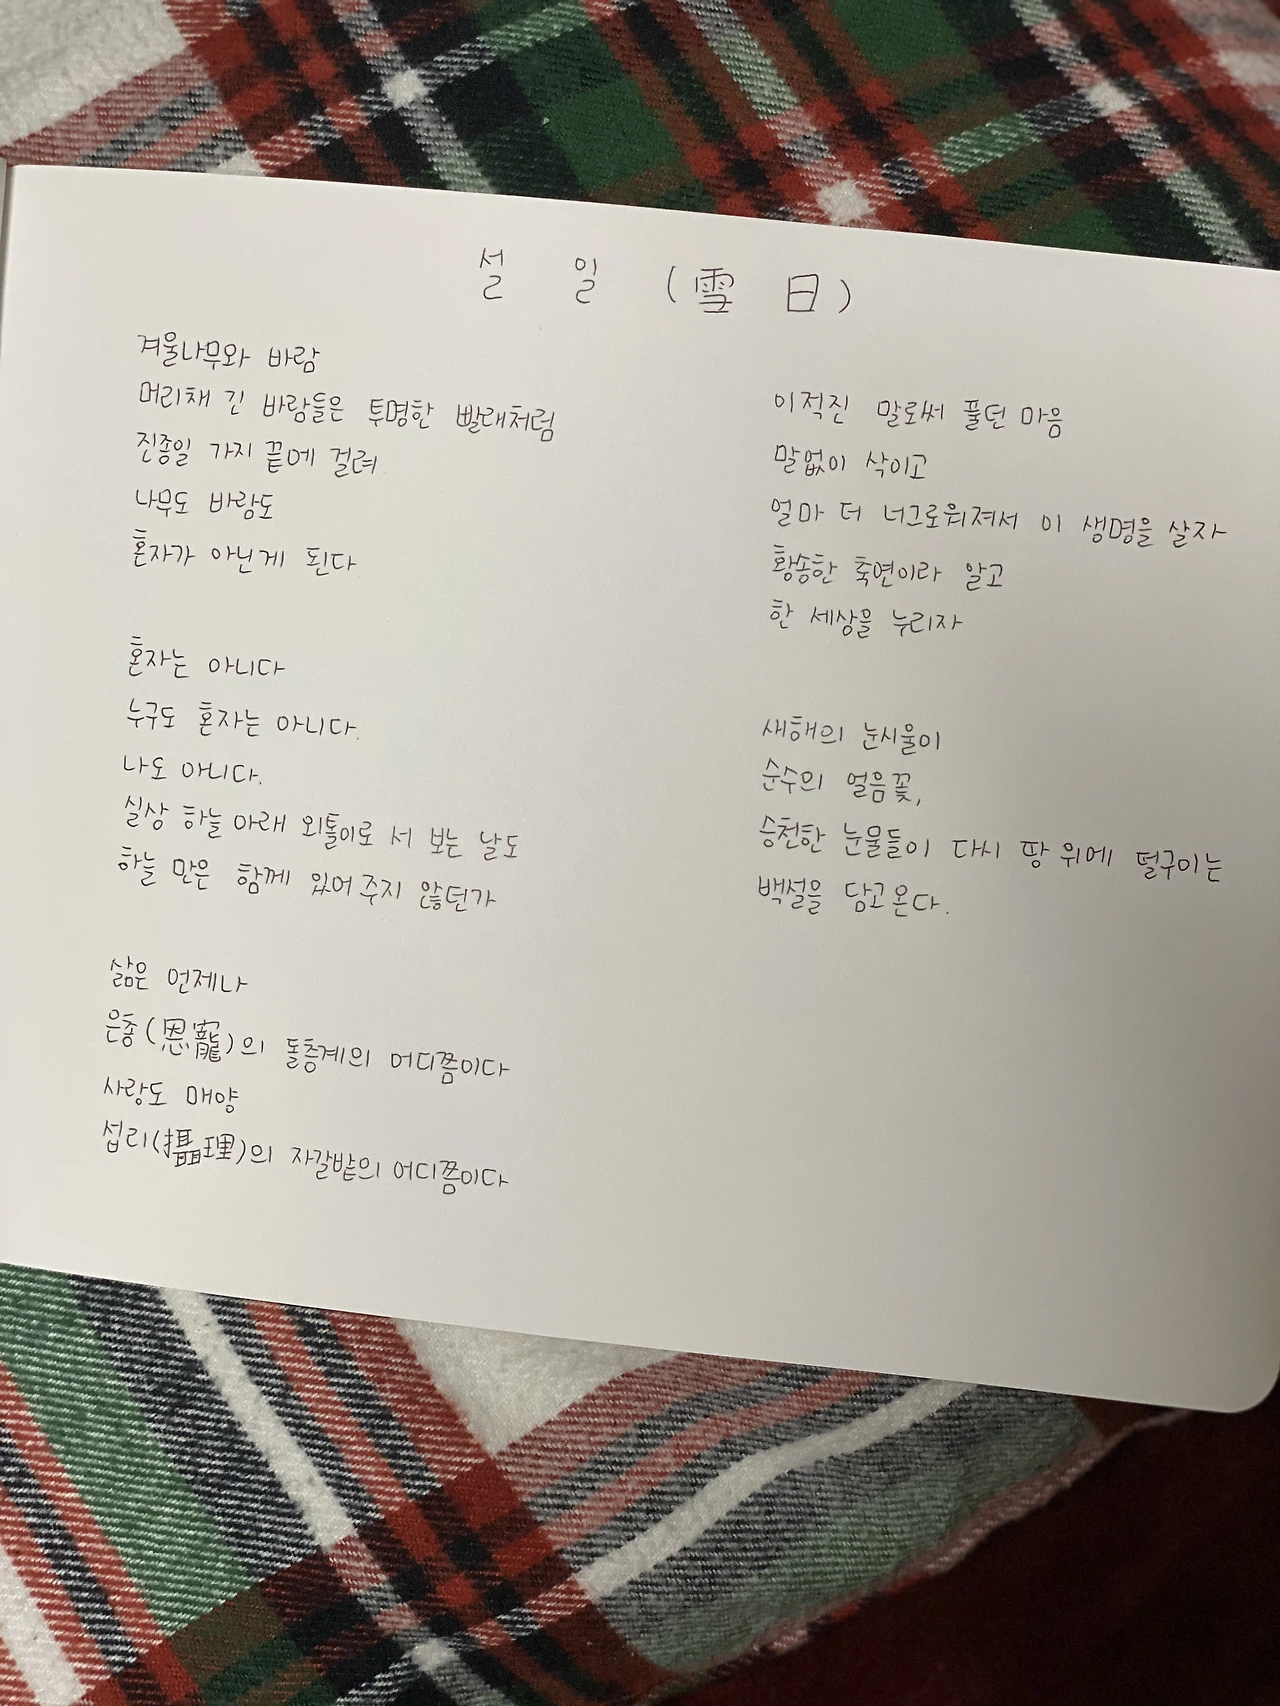 설 일 (雪 日)
겨울나무와 바람
머리채 긴 바람들은 투명한 빨래처럼
진종일 가지 끝에 걸려
나무도 바람도
혼자가 아닌게 된다
혼자는 아니다
누구도 혼자는 아니다.
나도 아니다.
실상 하늘 아래 외톨이로 서 보는 날도
하늘 만은 함께 있어 주지 않던가
삶은 언제나
은총(恩寵)의 돌층계의 어디쯤이다
사랑도 매양
섭리(攝理)의 자갈밭의 어디쯤이다
이적진 말로써 풀던 마음
말없이 삭이고
얼마 더 너그로워져서 이 생명을 살자
황송한 축연이라 알고
한 세상을 누리자
새해의 눈시울이
순수의 얼음꽃,
승천한 눈물들이 다시 땅 위에 떨구이는
백설을 담고 온다.